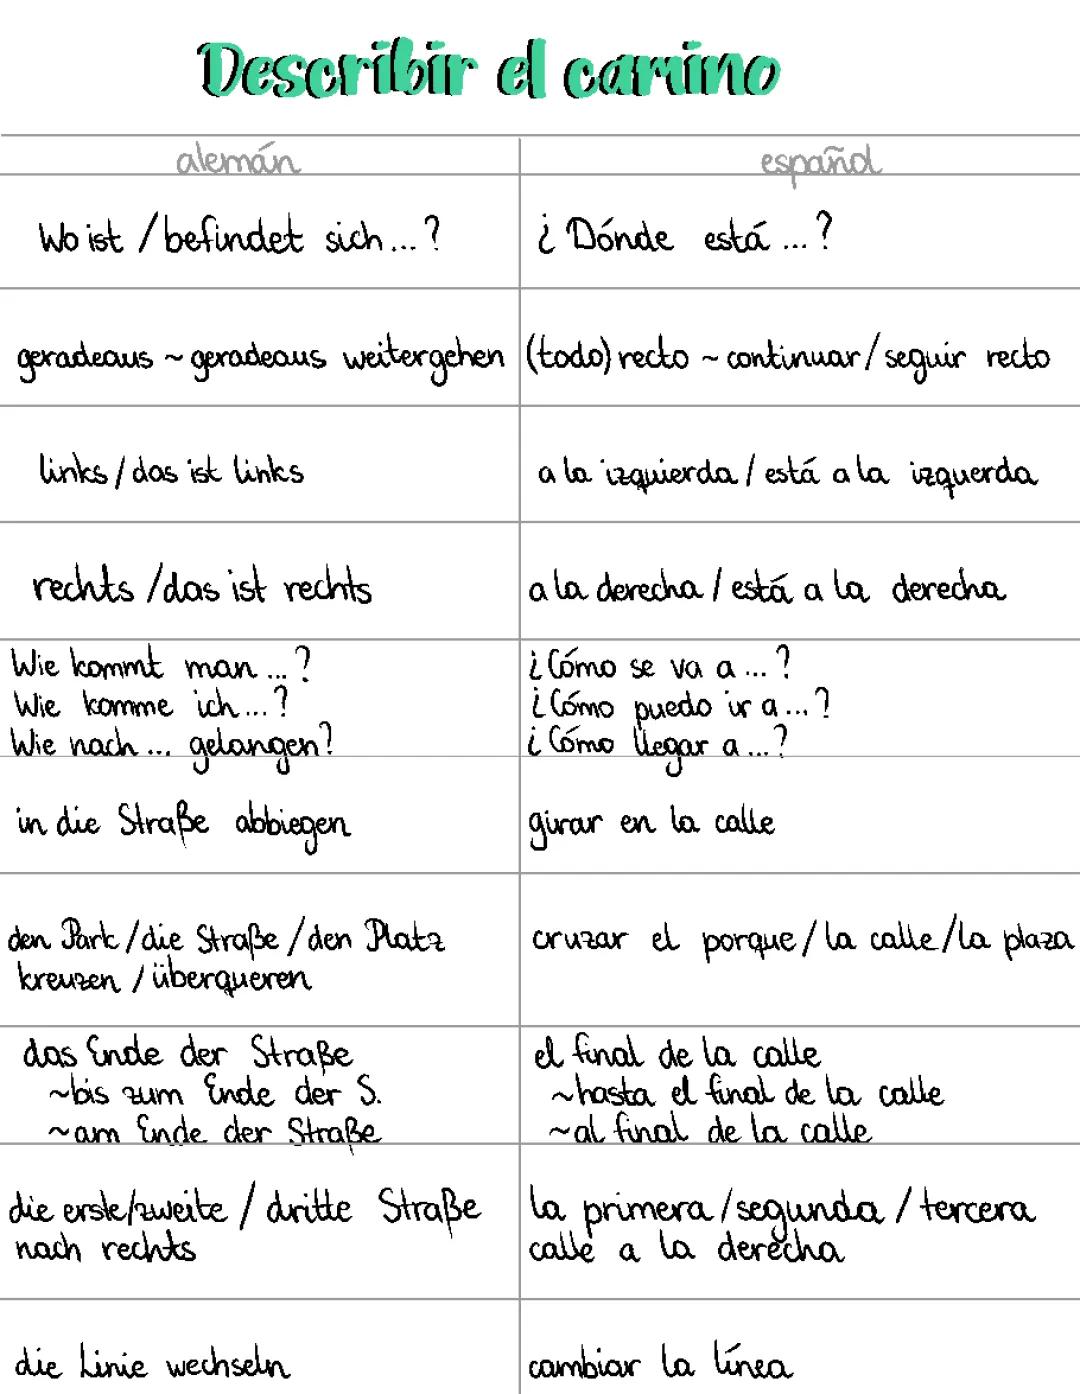 Describir el camino
alemán
español
Wo ist / befindet sich ... ?
¿ Dónde está ... ?
geradeaus ~ geradeaus weitergehen
(todo) recto ~ continuar / seguir recto
links / das ist links
a la izquierda / está a la izquerda
rechts / das ist rechts
a la derecha / está a la derecha
Wie kommt man ... ?
Wie komme ich ... ?
Wie nach ... gelangen?
¿ Cómo se va a ... ?
¿ Cómo puedo ir a ... ?
¿ Cómo llegar a ... ?
in die Straße abbiegen
girar en la calle
den Park / die Straße / den Platz
kreuzen / überqueren
cruzar el porque / la calle / la plaza
das Ende der Straße
~bis zum Ende der S.
~am Ende der Straße
el final de la calle
~hasta el final de la calle
~al final de la calle
die erste/zweite / dritte Straße
nach rechts
la primera / segunda / tercera
calle a la derecha
die Linie wechseln
cambiar la línea